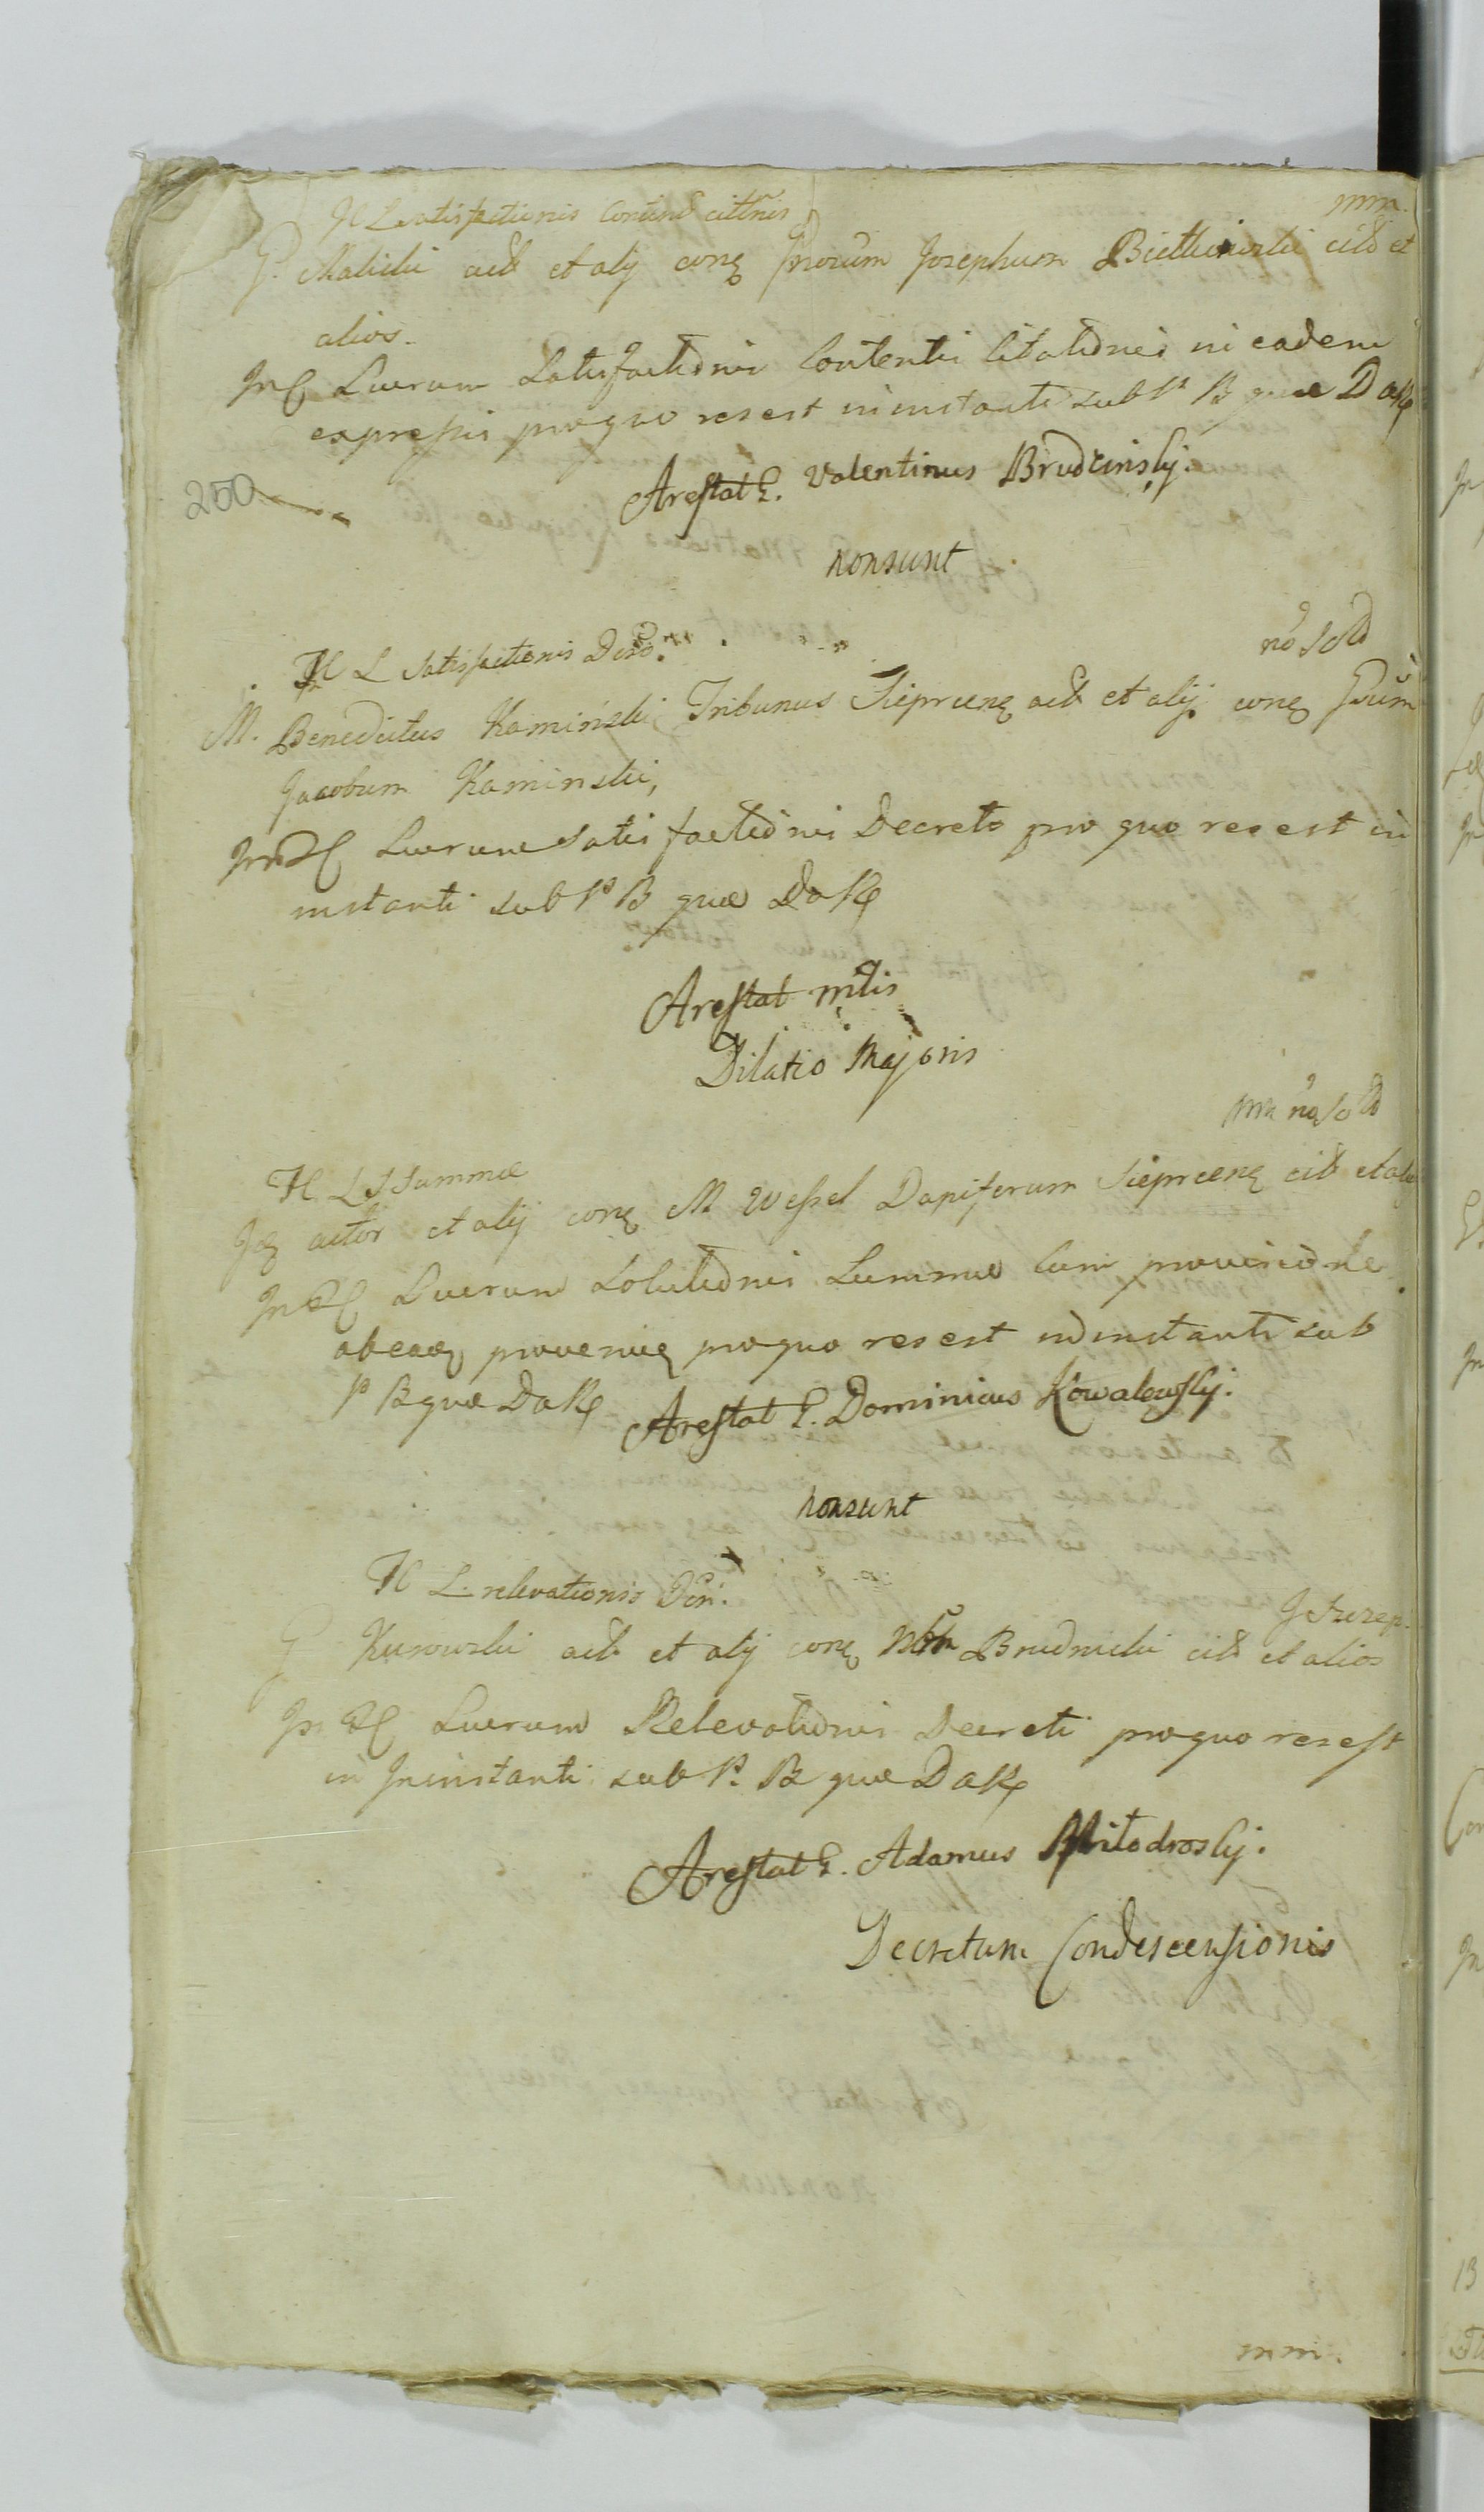 H L satisfactionis Content cittnis
mm.
G. Malicki act et alij conq Gnorum Josephum citt et
alios.
Lucrum Satisfactionis Contentis Citationis in eadem
expressis pro quo res est in instanti sub P B quae D
Arestat G. Valentinus Brudzinskj.
250
nonsunt
H L satisfactionis Decr.
no sod
M. Benedictus Kaminski Tribunus Sieprcenq act et alij conq Gnum
Jacobum Kaminski,
Lucrum satisfactionis Decreto pro quo res est in
instanti sub P B quae DaRq
Arestat mtis
Dilatio Majoris
mm no sod
H L S Summae
Jdq actor et alij conq M Wessel Dapiferum Sieprcenq citt et alij
Lucrum Solutionis Summae Cum provisione
ab eadq provenieq pro quo res est in instanti sub
P B quae DaRq Arestat G. Dominicus Kowalewskj.
nonsunt
H L. relevationis Dcri.
G Kurowski act et alij conq Brudnicki citt et alios
Lucrum Relevationis Decreti pro quo res est
in Jninstanti sub P. B quae DaRq
Arestat G. Adamus Mitodroskj.
Decretum Condescensionis
mm.